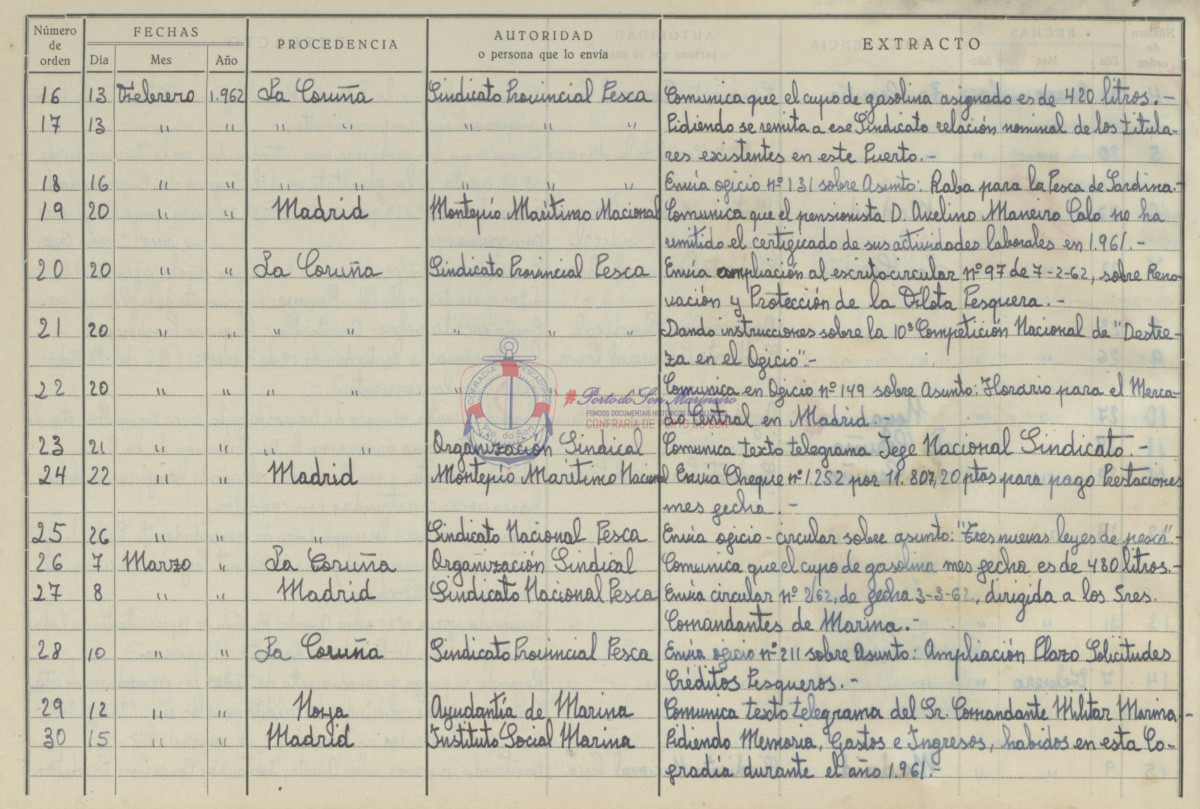 Número de orden | FECHAS | PROCEDENCIA | AUTORIDAD o persona que lo envía | EXTRACTO
Día | Mes | Año
16 | 13 | Febrero | 1.962 | La Coruña | Sindicato Provincial Pesca | Comunica que el cupo de gasolina asignado es de 420 litros.-
17 | 13 | " | " | " " | " " " | Pidiendo se remita a ese Sindicato relación nominal de los titula-
res existentes en este Puerto.-
18 | 16 | " | " | " " " | " " " | Envía oficio nº 131 sobre Asunto: Raba para la Pesca de Sardina.-
19 | 20 | " | " | Madrid | Montepío Marítimo Nacional | Comunica que el pensionista D. Avelino Maneiro Colo no ha
remitido el certificado de sus actividades laborales en 1.961.-
20 | 20 | " | " | La Coruña | Sindicato Provincial Pesca | Envía ampliación al escrito circular nº 97 de 7-2-62, sobre Reno-
vación y Protección de la Flota Pesquera.-
21 | 20 | " | " | " " | " " " | Dando instrucciones sobre la 10ª Competición Nacional de "Destre-
za en el Oficio".-
22 | 20 | " | " | " " | " | Comunica en Oficio nº 149 sobre Asunto: Horario para el Merca-
do Central en Madrid.-
23 | 21 | " | " | " " " | Organización Sindical | Comunica texto telegrama Jefe Nacional Sindicato.-
24 | 22 | " | " | Madrid | Montepío Marítimo Nacional | Envía Cheque nº 1.252 por 11.807,20 ptas para pago Prestaciones
mes fecha.-
25 | 26 | " | " | " | Sindicato Nacional Pesca | Envía oficio-circular sobre asunto: "Tres nuevas leyes de pesca".-
26 | 7 | Marzo | " | La Coruña | Organización Sindical | Comunica que el cupo de gasolina mes fecha es de 480 litros.-
27 | 8 | " | " | Madrid | Sindicato Nacional Pesca | Envía circular nº 2/62, de fecha 3-3-62, dirigida a los Sres.
Comandantes de Marina.-
28 | 10 | " | " | La Coruña | Sindicato Provincial Pesca | Envía oficio nº 211 sobre Asunto: Ampliación Plazo Solicitudes
Créditos Pesqueros.-
29 | 12 | " | " | Noya | Ayudantía de Marina | Comunica texto telegrama del Sr. Comandante Militar Marina.-
30 | 15 | " | " | Madrid | Instituto Social Marina | Pidiendo Memoria, Gastos e Ingresos, habidos en esta Co-
fradía durante el año 1.961.-
#Porto do Son Mariñeiro
FONDOS DOCUMENTAIS HISTÓRICOS
CONFRARÍA DE PORTO DO SON